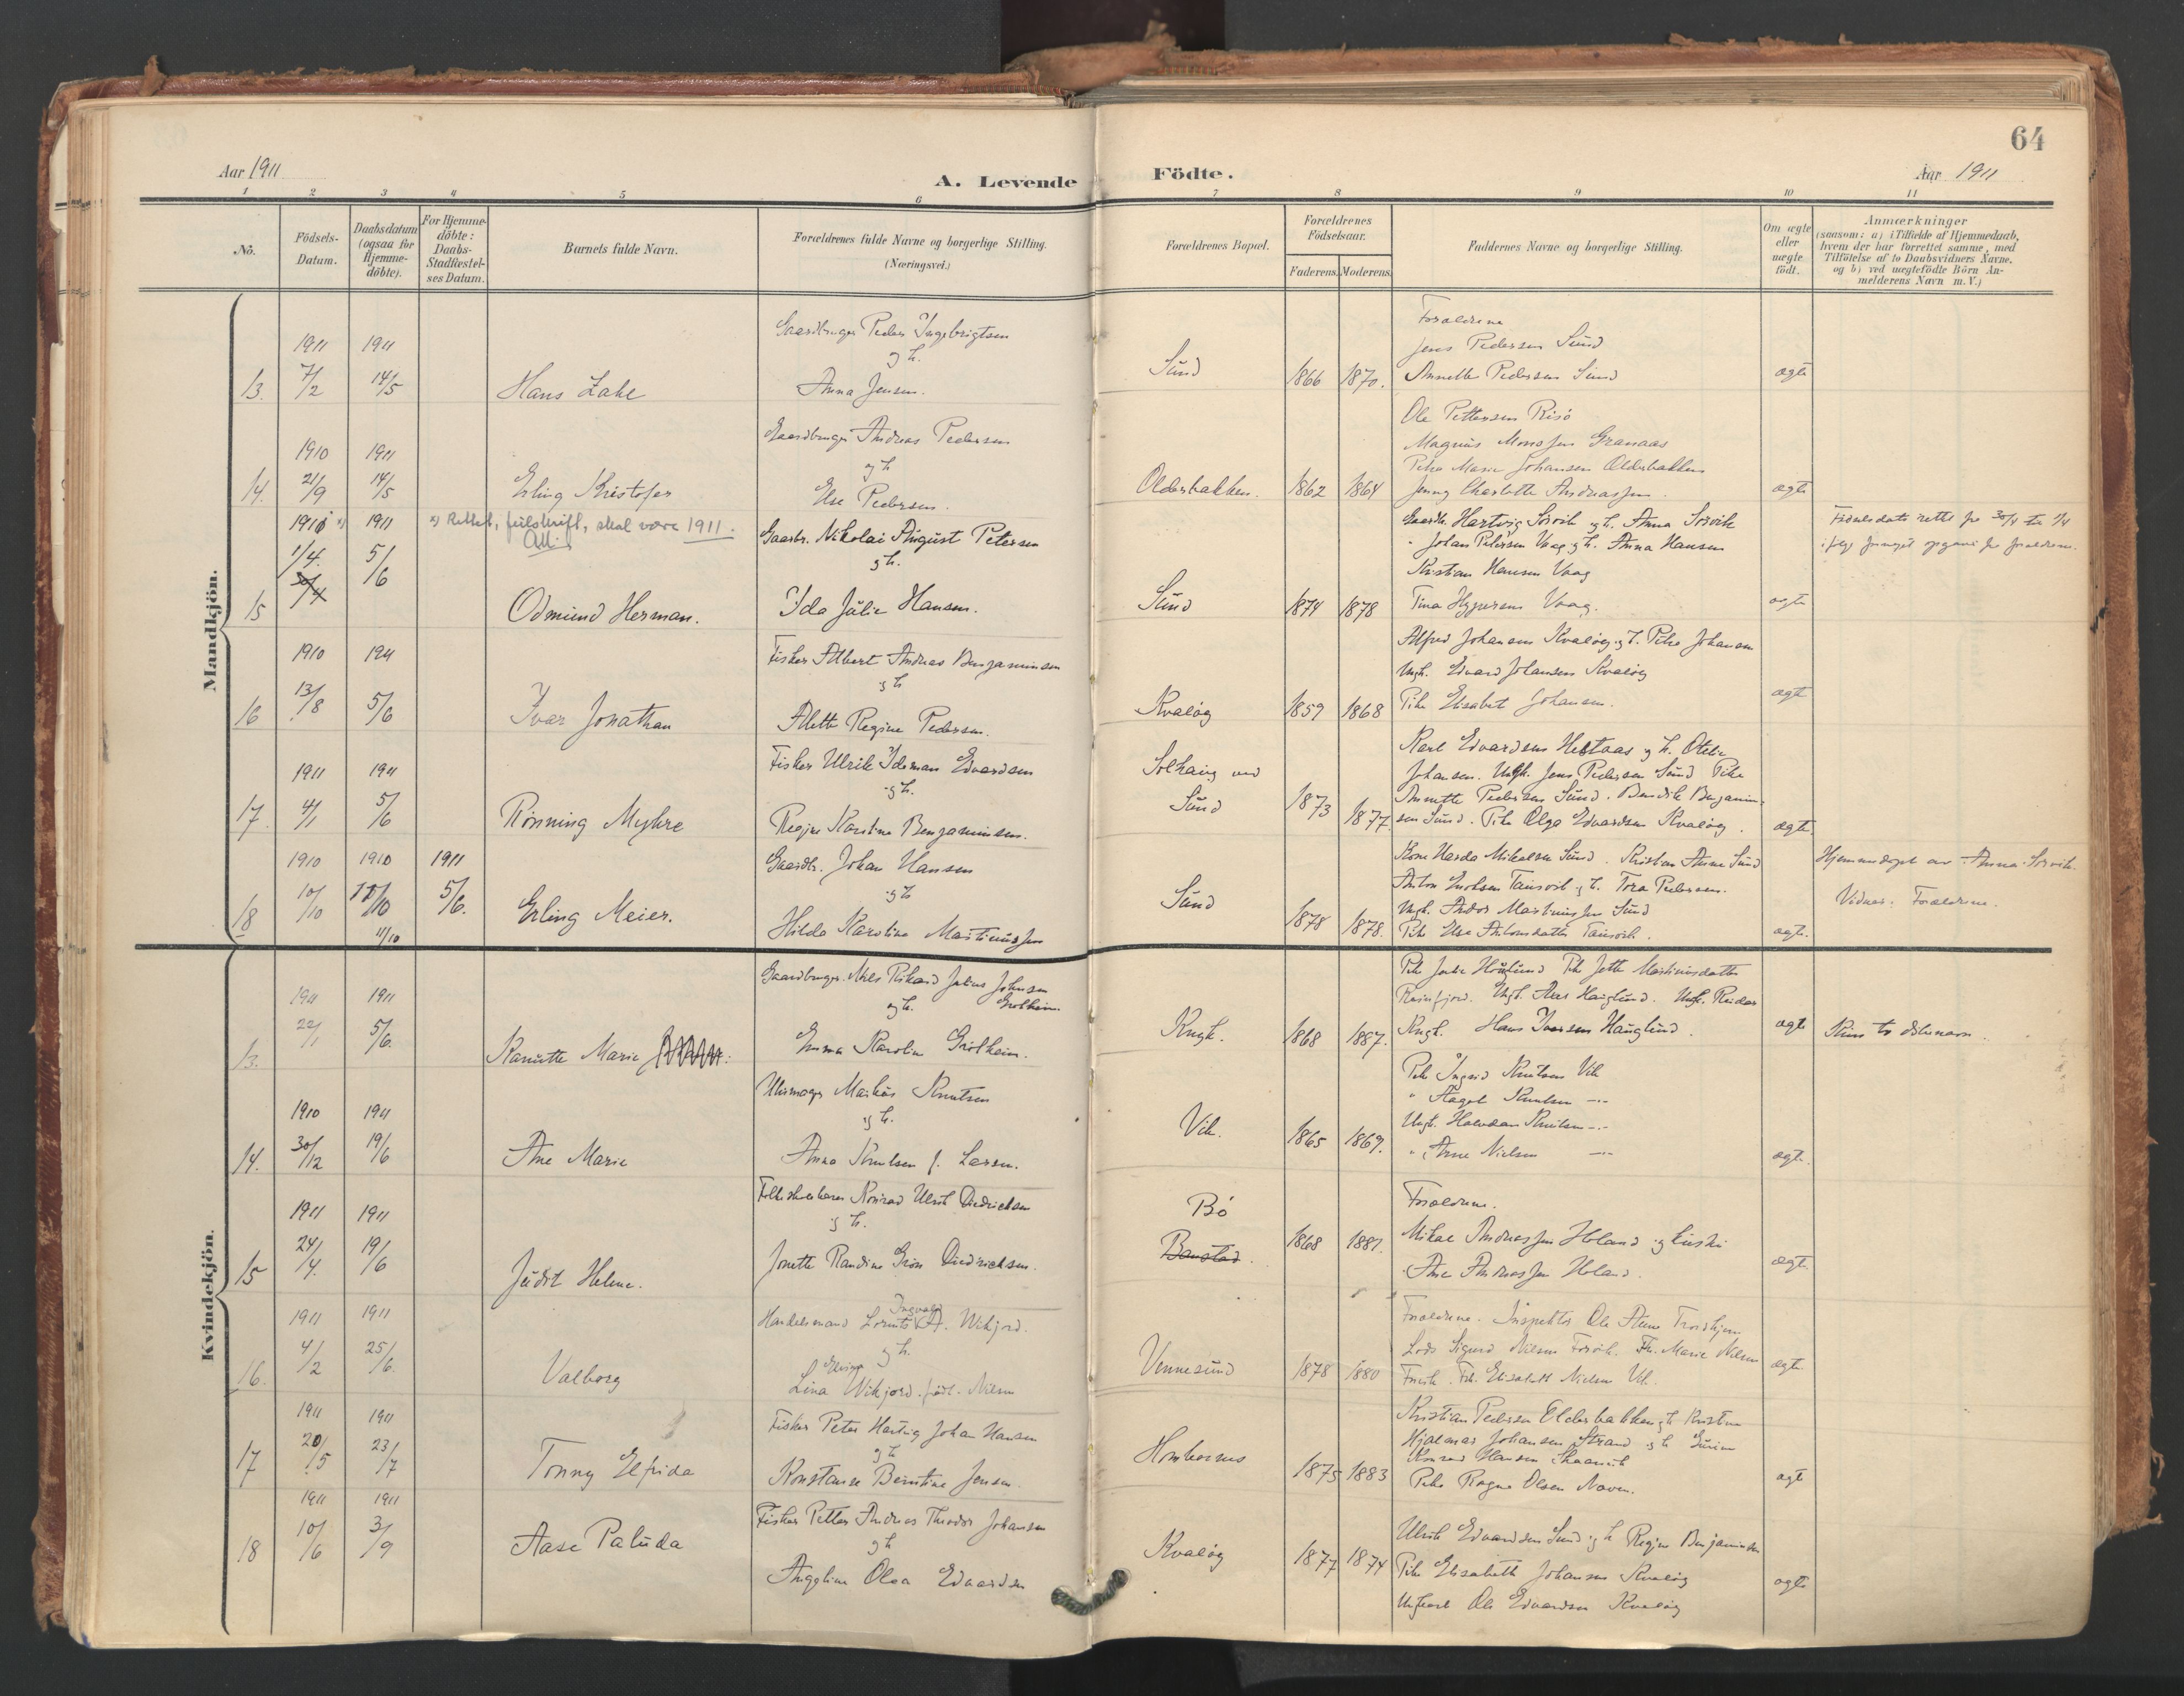 64
Aar 1911
A. Levende Födte.
Aar 1911
1 2 3 4 5 6 7 8 9 10 11
No.
Födsels-Datum.
Daabsdatum (ogsaa for Hjemme-döbte).
For Hjemme-döbte: Daabs-Stadfæstel-ses Datum.
Barnets fulde Navn.
Forældrenes fulde Navne og borgerlige Stilling.
(Næringsvei.)
Forældrenes Bopæl.
Forældrenes Födselsaar.
Faderens. Moderens.
Faddernes Navne og borgerlige Stilling.
Om ægte eller uægte födt.
Anmærkninger
(saasom: a) i Tilfælde af Hjemmedaab, hvem der har forrettet samme, med Tilföielse af to Daabsvidners Navne, og b) ved uægtefödte Börn An-melderens Navn m.V.)
Mandkjön.
13. 1911 7/2 1911 14/5 Hans
Gaardbruger Peder Ingebrigtsen
g h.
Anna Jensen.
Sund 1866 1870.
Forældrene
Jens Pedersen Sund
Annette Pedersen Sund
ægte
14. 1910 21/9 1911 14/5 Erling Kristofer
Gaardbruger Andreas Pedersen
g h
Else Pedersen.
Olderbakken. 1862 1864
Ole Pettersen Risö
Magnus Granaas
Petra Marie Johansen Olderbakken
Jenny Charlotte Andreassen.
ægte
x) Rettet, feilskrift, skal være 1911.
15 1/4 30/4 1911 5/6 Odmund Herman.
Gaardbr. Nikolai August Petersen
g h.
Ida Julie Hansen.
Sund 1874 1878
Gaardbr. Hartvig Sörvik g h. Anna Sörvik
" Johan Petersen Vaag g h. Anna Hansen
Kristian Hansen Vaag
Tina Vaag.
ægte
Födselsdato rettet fra 30/4 til 1/4
16 1910 13/8 1911 5/6 Ivar Jonathan
Fisker Albert Andreas Benjaminsen
g h
Alette Regine Pedersen.
Kvalög 1859 1868
Alfred Johansen Kvalög g h. Petra Johansen
Ungk. Edvard Johansen Kvalög
Pike Elisabet Johansen.
ægte
17. 1911 4/1 1911 5/6 Rönning Myhre
Fisker Ulrik Edvardsen
g h.
Regine Karstine Benjaminsen.
Solhaug ved
Sund 1873 1877.
Karl Edvardsen g h. Otelie
Johansen. Ungk. Jens Pedersen Sund Pike
Annette Pedersen Sund. Bendik Benjamin-
sen Sund. Pike Olga Edvardsen Kvalög.
ægte.
18 1910 10/10 1910 11/10 1911 5/6. Erling Meier.
Gaardbr. Johan Hansen
g h
Hilda Karoline Martinussen
Sund 1878 1878.
Kone Mikalsen Sund. Kristian Sund
Anton g h. Tora Pedersen.
Ungk. Andor Martinussen Sund
Pike Else
ægte.
Hjemmedöpt av Anna Sörvik.
Vidner: Forældrene.
Kvindekjön.
13. 1911 22/1 1911 5/6. Marie
Gaardbruger Nils Rikard Julius Johnsen
g h.
Emma Karoline
1868 1887.
Hans Iversen Hauglund.
ægte
14. 1910 30/12 1911 19/6 Ane Marie
Markus Knutsen
g h.
Anna Knutsen f. Larsen.
Vik. 1865 1869.
Pike Ingrid Knutsen Vik
" Aagot Knutsen -"-
Ungk. Halvdan Knutsen -"-
" Arne Nielsen -"-
ægte.
15 1911 24/4. 1911 19/6 Judit Helene.
Konrad Ulrik Diedrichsen
g h.
Jonette Randine Grön Diedrichsen.
Bö
Baustad. 1868 1881.
Forældrene.
Mikal Andreassen Höland og hustru
Ane Andreassen Höland.
ægte.
16. 1911 4/2 1911 25/6. Valborg
Handelsmand Lorents Ingvald A. Wikjord.
g h.
Lina Elvina Wikjord. född. Nilsen
Vennesund 1878 1880
Forældrene. Inspektör Ole Trondhjem
Lods Sigurd Nilsen Frk. Marie Nilsen
Frk. Elisabeth Nielsen Vik.
ægte.
17 1911 20/5 1911 23/7 Tonny Elfrida
Fisker Peter Hartvig Johan Hansen
g h
Konstanse Berntine Jensen.
Hornbornes 1875 1883
Kristian Pedersen Olderbakken g h Kristine
Hjalmar Johansen Strand g h
Konrad Hansen
Pike Ragna Olsen Naven.
ægte
18 1911 10/6 1911 3/9 Aase Paluda
Fisker Petter Andreas Theodor Johansen
g h
Angeline Olea Edvardsen
Kvalög 1877 1874
Ulrik Edvardsen Sund g h Regine Benjaminsen
Pike Elisabeth Johansen Kvalög
Ungkarl Ole Edvardsen Kvalög
ægte